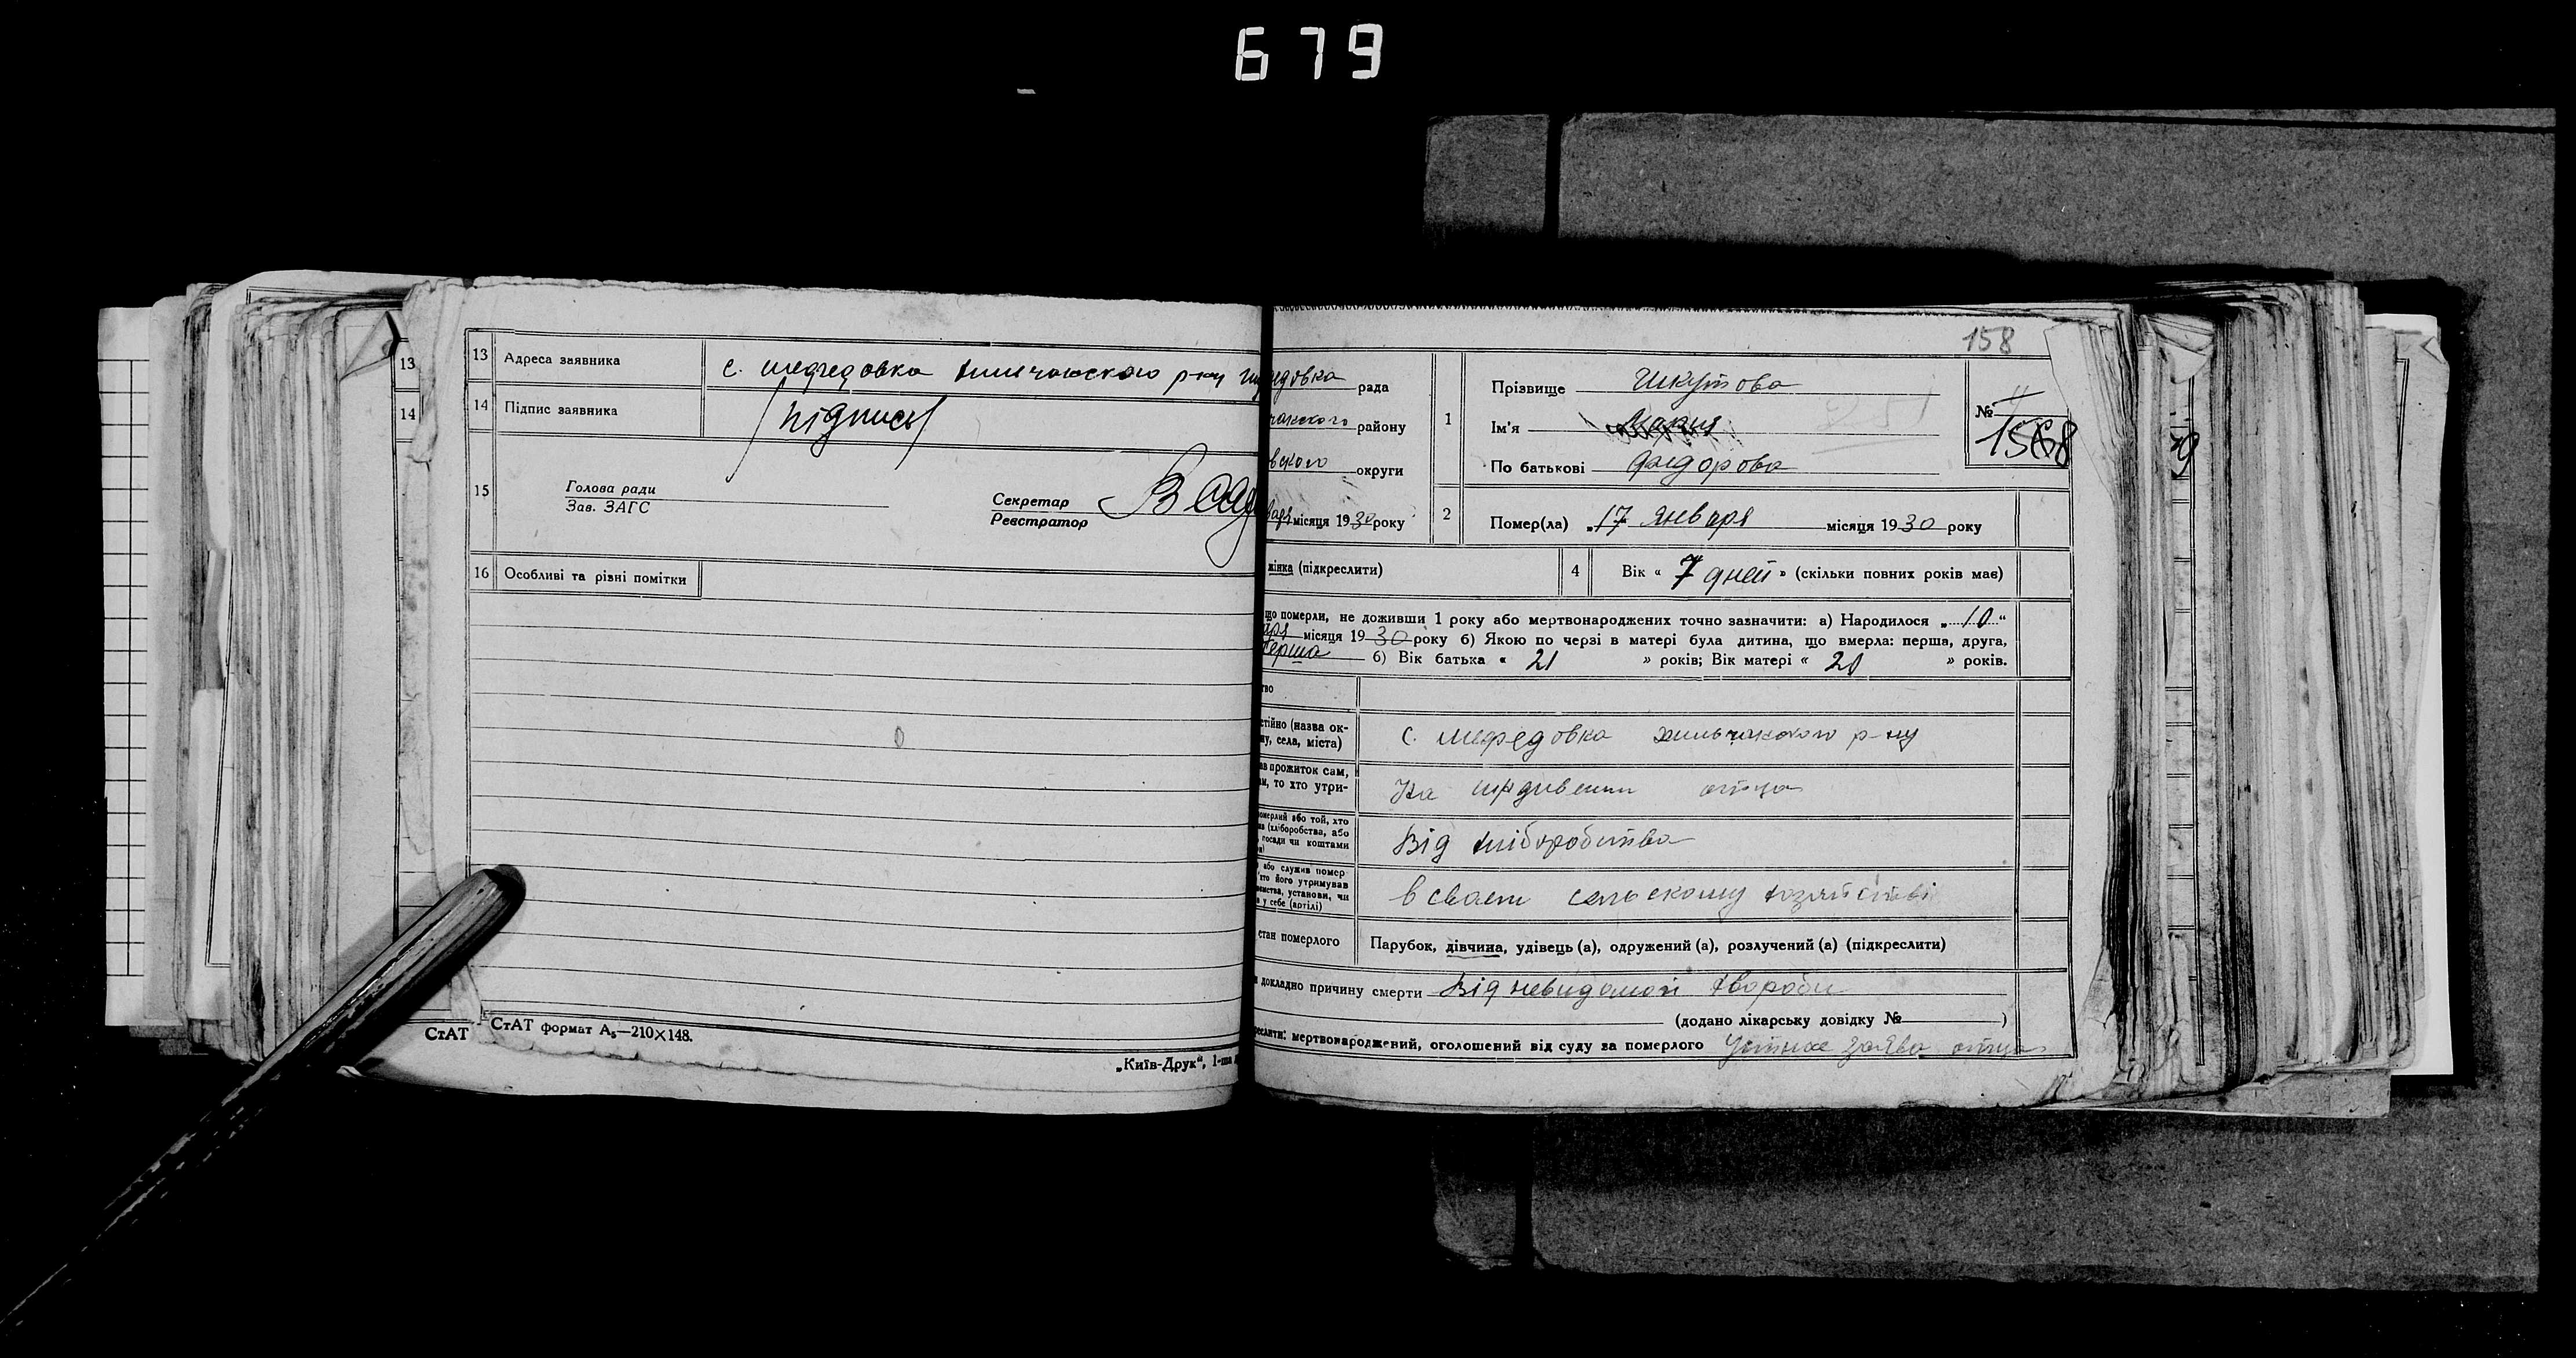 679
13
14
13 Адреса заявника с.
14 Підпис заявника підпись
15 Голова ради
Зав. ЗАГС
Секретар
Реєстратор
16 Особливі та різні помітки
СтАТ
СтАТ формат А₅—210×148.
„Київ-Друк“, 1-ша
158
едовка рада
району
вского округи
місяця 1930 року
1
Прізвище Шкутова
Ім'я Мария
По батькові Федорова
№ 11
158
2 Помер(ла) „17 января місяця 1930 року
жінка (підкреслити)
4 Вік « 7 дней » (скільки повних років має)
що померли, не доживши 1 року або мертвонароджених точно зазначити: а) Народилося „ 10 “
місяця 1930 року б) Якою по черзі в матері була дитина, що вмерла: перша, друга,
перша б) Вік батька « 21 » років; Вік матері « 20 » років.
тво
стійно (назва ок-
ну, села, міста)
с. р-ну
ав прожиток сам,
ам, то хто утри-
На отца
померлий або той, хто
(хліборобства, або
посади чи коштами
Від хліборобства
або служив помер
хто його утримував
установи, чи
у себе (артілі)
в своем сельскому хозяйстві
стан померлого
Парубок, дівчина, удівець (а), одружений (а), розлучений (а) (підкреслити)
докладно причину смерти Від невидомой хвороби
(додано лікарську довідку № )
реслити: мертвонароджений, оголошений від суду за померлого Устное заява отца